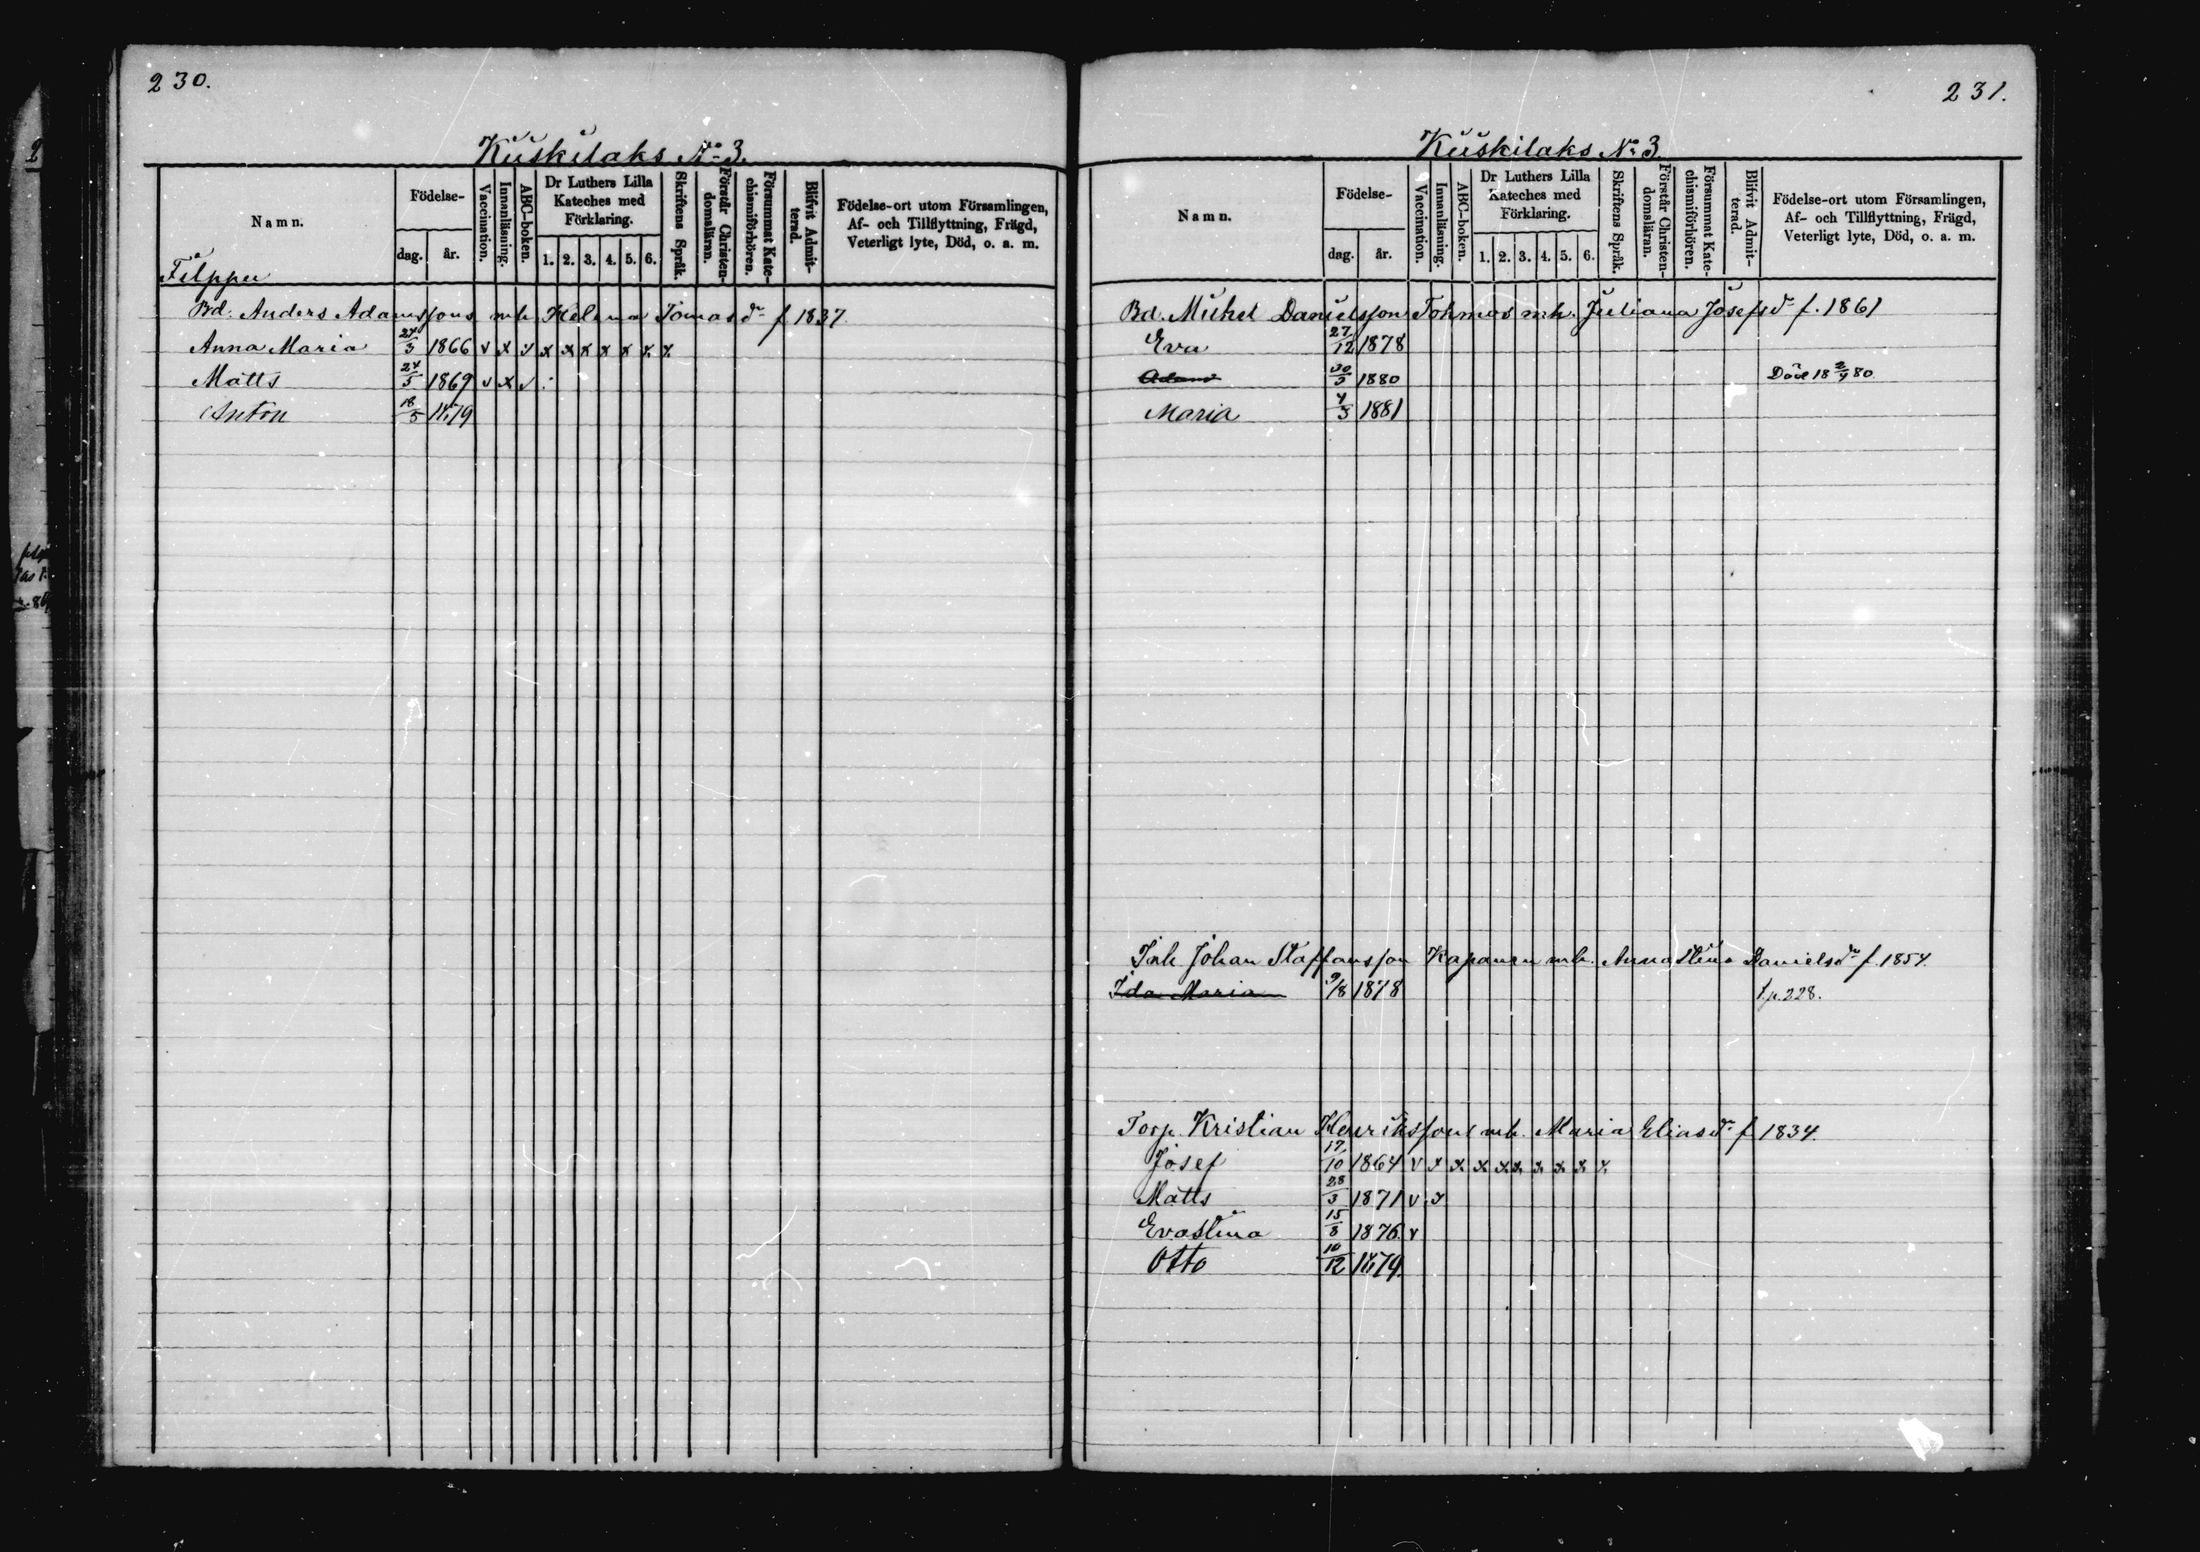 230.
Kuskilaks No 3.
Namn.
Födelse-
dag. år.
Vaccination.
Innanläsning.
ABC-boken.
Dr Luthers Lilla Kateches med Förklaring.
1. 2. 3. 4. 5. 6.
Skriftens Språk.
Förstår Christendomsläran.
Försummat Katechismiförhören.
Blifvit Admitterad.
Födelse-ort utom Församlingen, Af- och Tillflyttning, Frägd, Veterligt lyte, Död, o. a. m.
Filppu
Bd. Anders Adamssons mh Helena Tomasdr f 1837.
Anna Maria 24/3 1866 v x v x x x x x x x
Matts 24/5 1869 v x v
Anton 18/5 1879
231.
Kuskilaks No 3
Namn.
Födelse-
dag. år.
Vaccination.
Innanläsning.
ABC-boken.
Dr Luthers Lilla Kateches med Förklaring.
1. 2. 3. 4. 5. 6.
Skriftens Språk.
Förstår Christendomsläran.
Försummat Katechismiförhören.
Blifvit Admitterad.
Födelse-ort utom Församlingen, Af- och Tillflyttning, Frägd, Veterligt lyte, Död, o. a. m.
Bd. Mickel Danielsson Tohmas mh. Juliana Josefsdr f. 1861
Eva 27/12 1878
Adam 1880 Död 18 2/4 80
Maria 4/3 1881
Inh Johan Staffansson Kapanen mh. Annastina Danielsdr f. 1854.
Ida Maria 9/8 1878 t.p. 228.
Torp. Kristian Henrikssons mh. Maria Eliasdr f 1834.
Josef 17/10 1864 v x x x x x x x x x
Matts 28/3 1871 v x
Evastina 15/8 1876. v
Otto 10/12 1879.